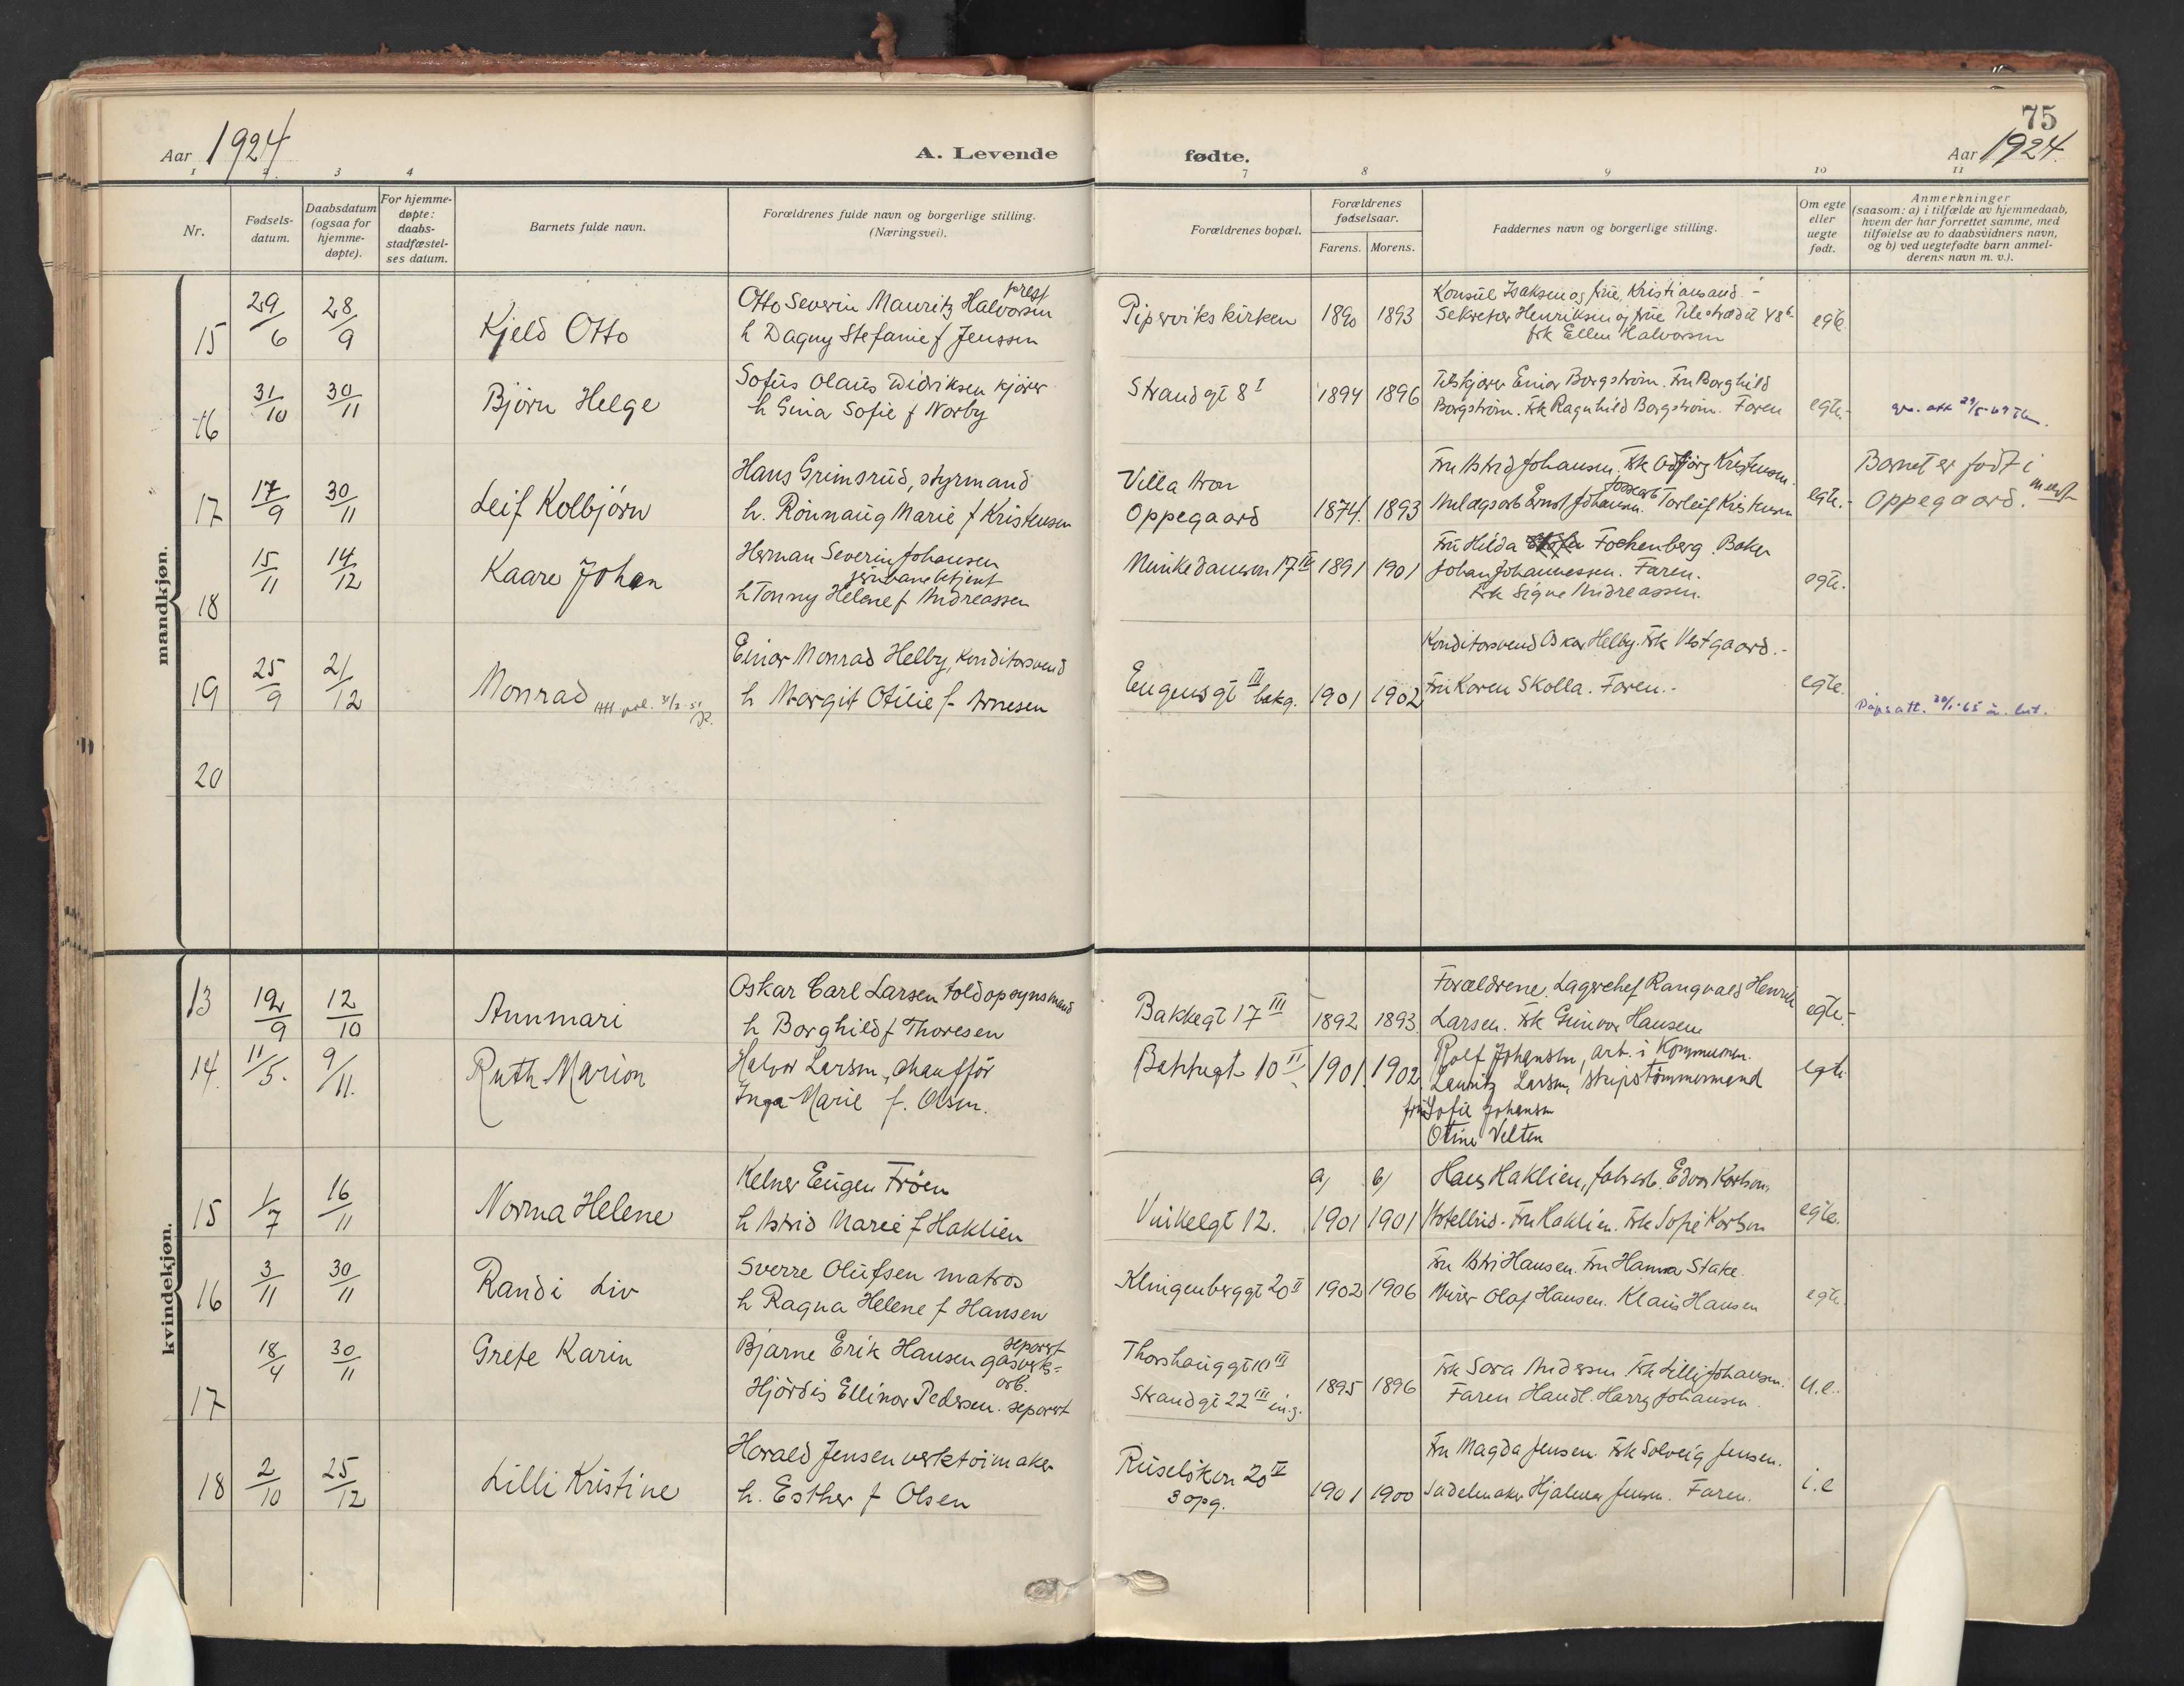 75
Aar 1924
A. Levende fødte.
Aar 1924.
1 2 3 4 7 8 9 10 11
Nr.
Fødsels-
datum.
Daabsdatum
(ogsaa for
hjemme-
døpte).
For hjemme-
døpte:
daabs-
stadfæstel-
ses datum.
Barnets fulde navn.
Forældrenes fulde navn og borgerlige stilling.
(Næringsvei).
Forældrenes bopæl.
Forældrenes
fødselsaar.
Farens. Morens.
Faddernes navn og borgerlige stilling.
Om egte
eller
uegte
født.
Anmerkninger
(saasom: a) i tilfælde av hjemmedaab,
hvem der har forrettet samme, med
tilføielse av to daabsvidners navn,
og b) ved uegtefødte barn anmel-
derens navn m. v.).
mandkjøn.
15 29/6 28/9 Kjeld Otto
Otto Severin Mauritz Halvorsen prest
h Dagny Stefanie f Jenssen
Piperviks kirken 1890 1893
Konsul Isaksen og frue, Kristiansand. -
Sekretær Henriksen og frue Pilestrædet 48
frk Ellen Halvorsen
egte.
16 31/10 30/11 Bjørn Helge
Sofus Olaus Didriksen kjører
h Gina Sofie f Norby
Strandgt 8 I 1894 1896
Einar Borgstrøm. Fru Borghild
Borgstrøm. Frk Ragnhild Borgstrøm. Faren
egte.-
17 17/9 30/11 Leif Kolbjørn
Hans Grimsrud, styrmand
h. Rønnaug Marie f Kristensen
Villa
Oppegaard 1874. 1893
Fru Astrid Johansen. Frk Odbjørg Kristensen.
Ernst Johansen. Torleif Kristensen
egte.-
Barnet er født i
Oppegaard.
18 15/11 14/12 Kaare Johan
Herman Severin Johansen
jernbanebetjent
h Tonny Helene f Andreassen
Munkedamsvn 17 IV 1891 1901
Fru Hilda Fochenberg. Baker
Johan Johannessen. Faren.
Frk Signe Andreassen.
egte.
19 25/9 21/12 Monrad
Einar Monrad Helby, konditorsvend
h Margit Otilie f Arnesen
Eugensgt III bakg. 1901 1902
Konditorsvend Oskar Helby. Frk Vestgaard.-
Fru Karen Skolla. Faren.-
egte.
Dåpsatt. 20/1-65
20
kvindekjøn.
13 12/9 12/10 Annmari
Oskar Carl Larsen toldopsynsmand
h Borghild f Thoresen
Bakkegt 17 III 1892 1893
Forældrene. Lagerchef Rangvald Henrik
Larsen. Frk Gunvor Hansen
egte.-
14. 11/5. 9/11. Ruth Marion
Halvor Larsen, chauffør
Inga Marie f. Olsen.
Bakkegt 10 II 1901. 1902
Rolf Johansen, arb. i Kommunen.
Lauritz Larsen, skipstømmermand
fru Sofie Johansen
Otine Velten
egte.
15 1/7 16/11 Norma Helene
Kelner Eugen Trøen
h Astrid Marie f Haklien
Vinkelgt 12. a, 1901 b, 1901
Hans Haklien, fabr.arb. Edvar Karlson,
Fru Haklien. Frk Sofie Karlson
egte.
16 3/11 30/11 Randi Liv
Sverre Olufsen matros
h Ragna Helene f Hansen
Klingenberggt 20 II 1902 1906
Fru Hansen. Fru Hanna Stake.
Murer Olaf Hansen. Klaus Hansen
egte.
17 18/4 30/11 Grete Karin
Bjarne Erik Hansen separert
gasverks=
arb.
Hjørdis Ellinor Pedersen. separert
Thorshauggt 10 III
Strandgt 22 III in.g. 1895 1896
Frk Sara Andersen Frk Lilly Johansen.
Faren Handl. Harry Johansen.
u.e.
18 2/10 25/12 Lilli Kristine
Harald Jensen verktøimaker
h. Esther f Olsen
Ruseløkvn 20 IV
3 opg. 1901 1900
Fru Magda Jensen. Frk Solveig Jensen.
Sadelmaker Hjalmar Jensen. Faren.
i.e